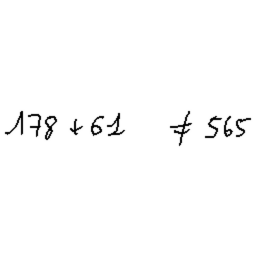 178 + 61 ≠ 565